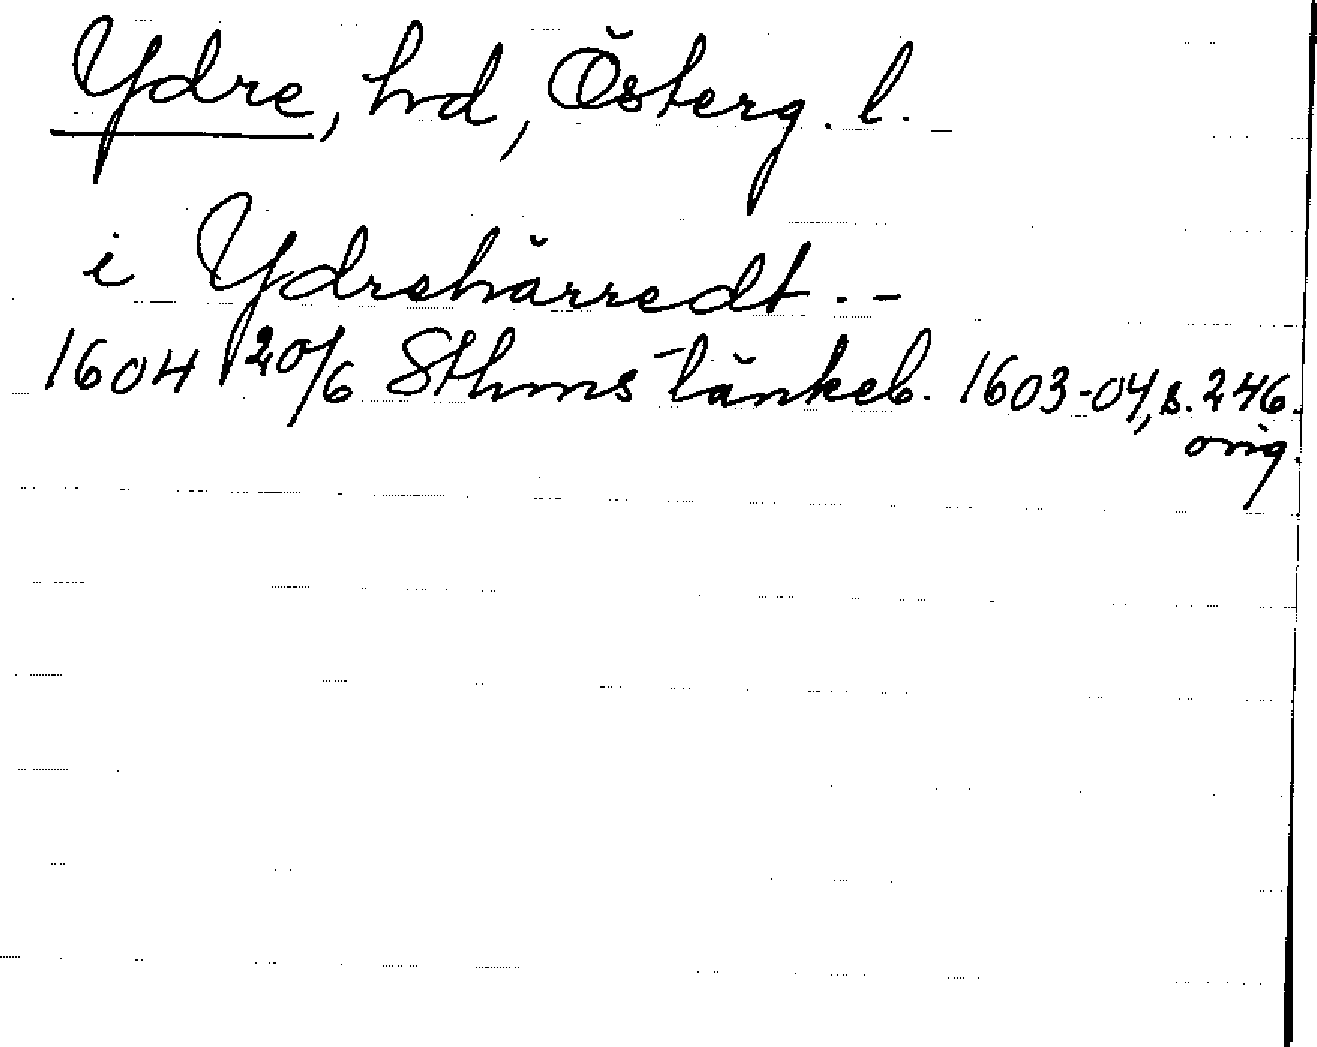 Ydre, hrd, Österg. l.
i Ydrehärredt. -
1604 20/6 Sthms tänkeb. 1603-04, s. 246.
orig.